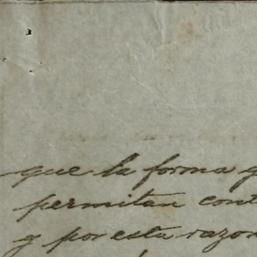 que la forma
permitan cont
y por esta razon